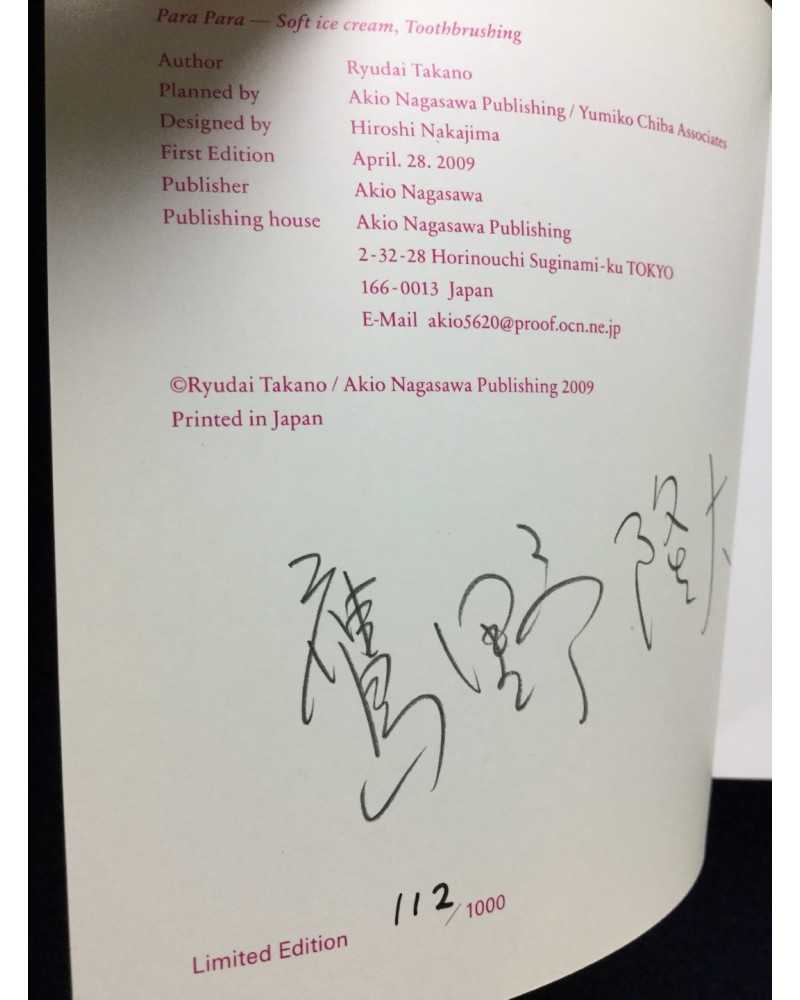 Para Para — Soft ice cream, Toothbrushing
Author Ryudai Takano
Planned by Akio Nagasawa Publishing / Yumiko Chiba Associates
Designed by Hiroshi Nakajima
First Edition April. 28. 2009
Publisher Akio Nagasawa
Publishing house Akio Nagasawa Publishing
2-32-28 Horinouchi Suginami-ku TOKYO
166-0013 Japan
E-Mail akio5620@proof.ocn.ne.jp
©Ryudai Takano / Akio Nagasawa Publishing 2009
Printed in Japan
鷹野隆大
Limited Edition 112/1000